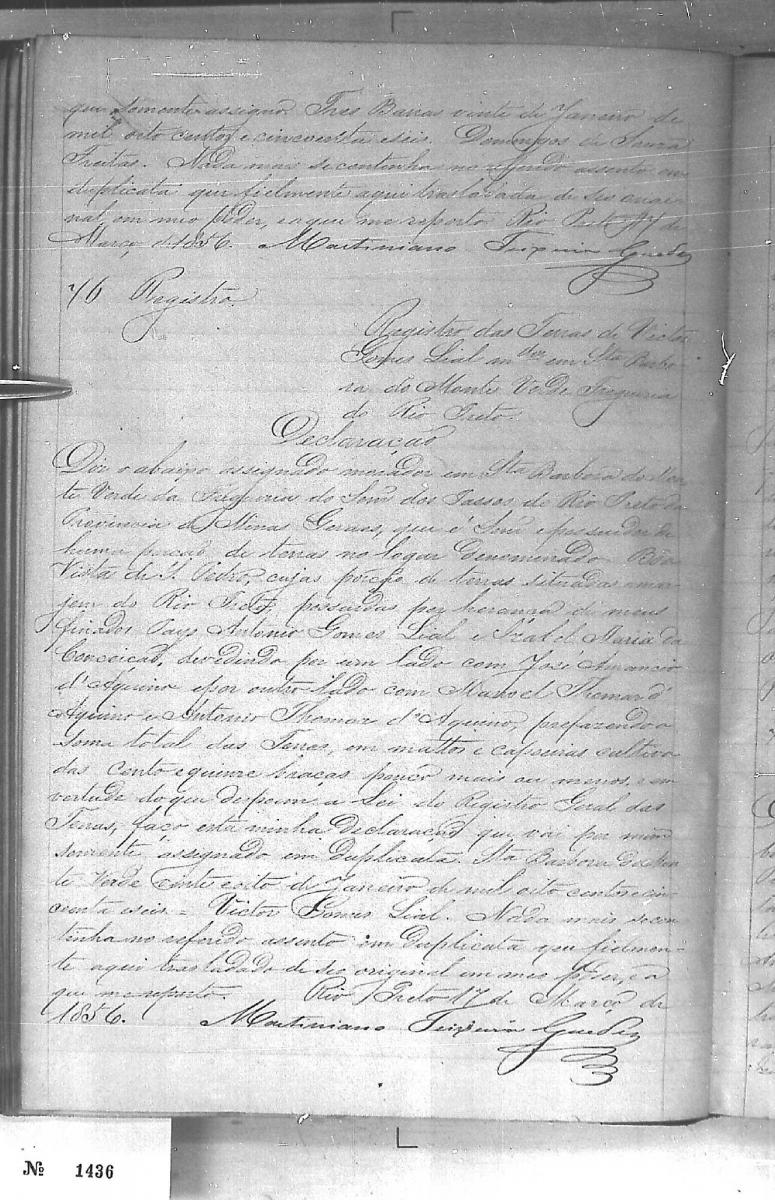 que somente assigno. Tres Barras vinte de Janeiro de
mil oito centos e cincoenta e seis. Domingos de Souza
Freitas. Nada mais se continha no referido assento em
duplicata que fielmente aqui trasladada de seo origi-
nal, em meo poder, e a que me reporto. Rio Preto 17 de
Março de 1856. Martiniano Teixeira Guedes
76 Registro.
Registro das Terras de Victor
Gomes Lial em Sta Barbo-
ra do Monte Verde Freguezia
do Rio Preto.
Declaração
Diz o abaixo assignado morador em Sta Barbora do Mon-
te Verde da Freguezia do Senr. dos Passos do Rio Preto da
Provincia de Minas Geraes, que é Senr. e possuidor de
huma porção de terras no logar denominado Boa
Vista de S. Pedro, cujas porção de terras situadas a mar-
jem do Rio Preto, possuidas por herança de meus
finados Pays Antonio Gomes Lial e Izabel Maria da
Conceição, devedindo por um lado com José Amancio
d'Aquino e por outro lado com Manoel Thomaz d'
Aquino e Antonio Thomaz d'Aquino, prefazendo a
soma total das Terras, em mattos e capoeiras cultiva-
das cento e quinze braças pouco mais ou menos, e em
vertude do que despoem a Lei do Registro Geral das
Terras, faço esta minha Declaração que vai por mim
somente assignado em Duplicata. Sta Barbora do Mon-
te Verde vinte e oito de Janeiro de mil oito centos e cin-
coenta e seis = Victor Gomes Lial. Nada mais se con-
tinha no referido assento em Duplicata que fielmen-
te aqui trasladado de seo original em meo poder, e a
que me reporto. Rio Preto 17 de Março de
1856. Martiniano Teixeira Guedes
№ 1436